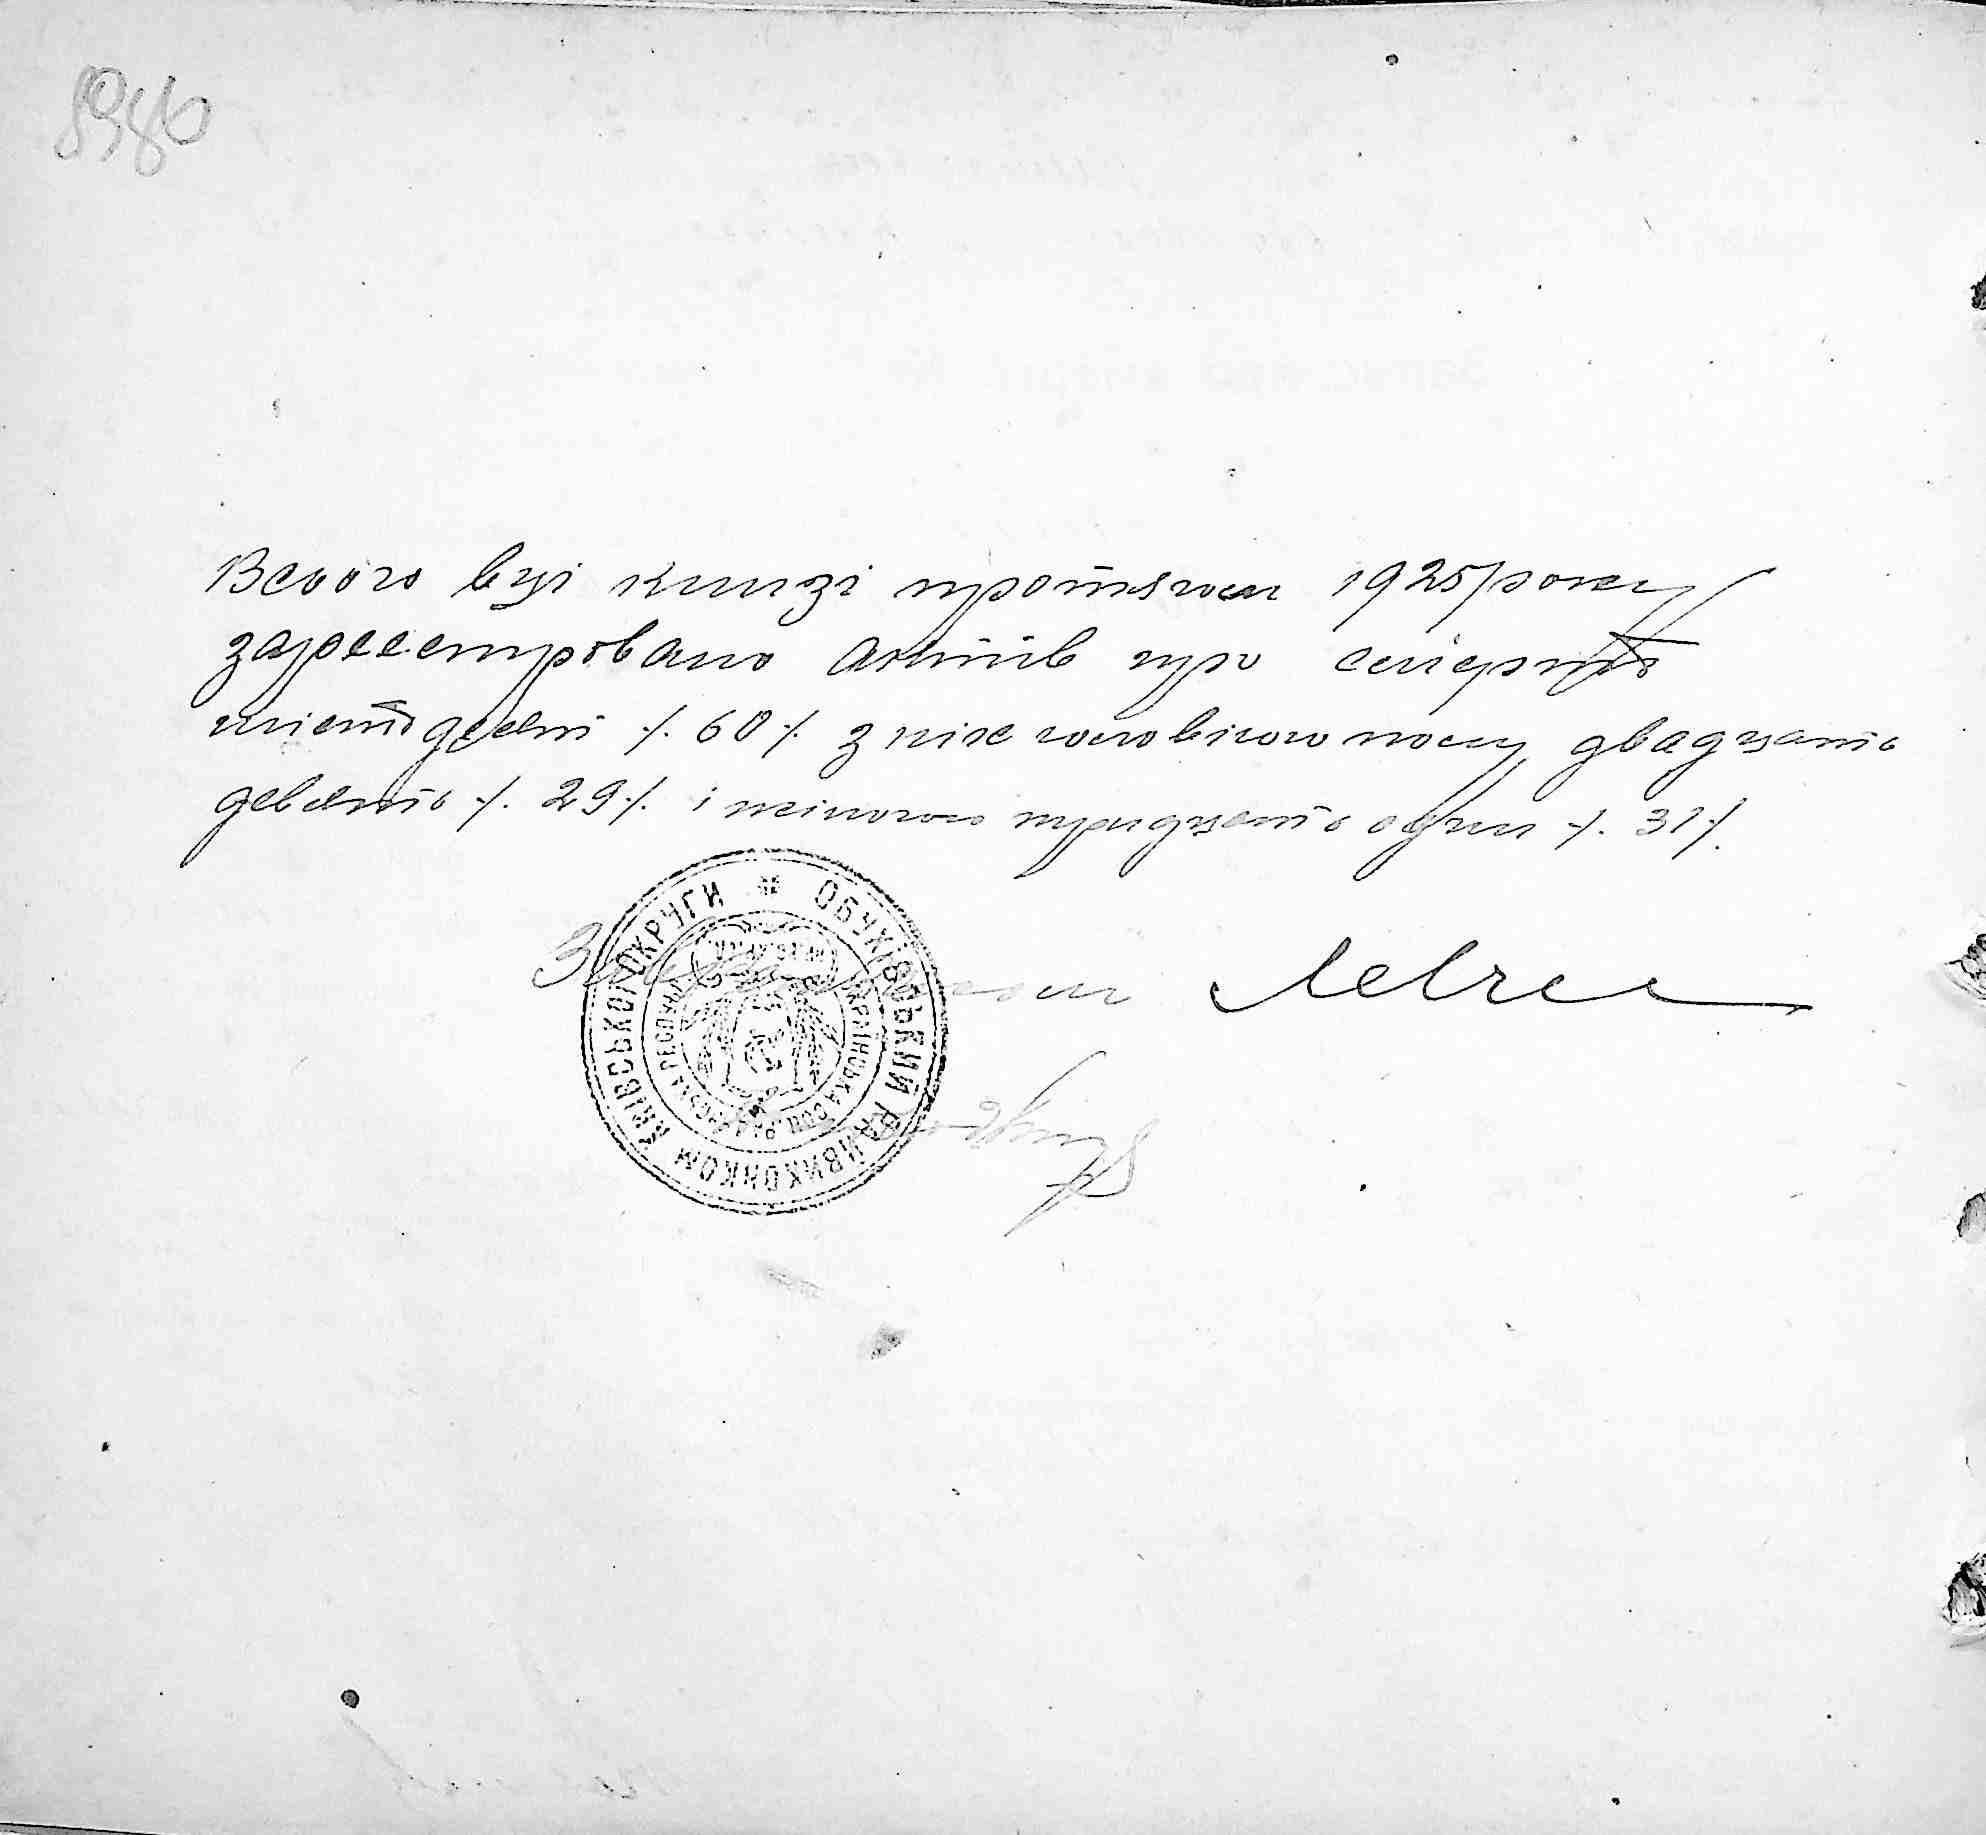 Всього вції книзі протягом 1925 року
зареєстровано актів про смерть
шістдесят ./. 60 ./. з них чоловічого полу двадцять
девять ./. 29 ./. і жіночого тридцять один ./. 31 ./.
ОБУХІВСЬКИЙ РАЙВИКОНКОМ КИЇВСЬКОЇ ОКРУГИ
УКРАЇНСЬКА СОЦ. РАДЯНСЬКА РЕСПУБЛ.